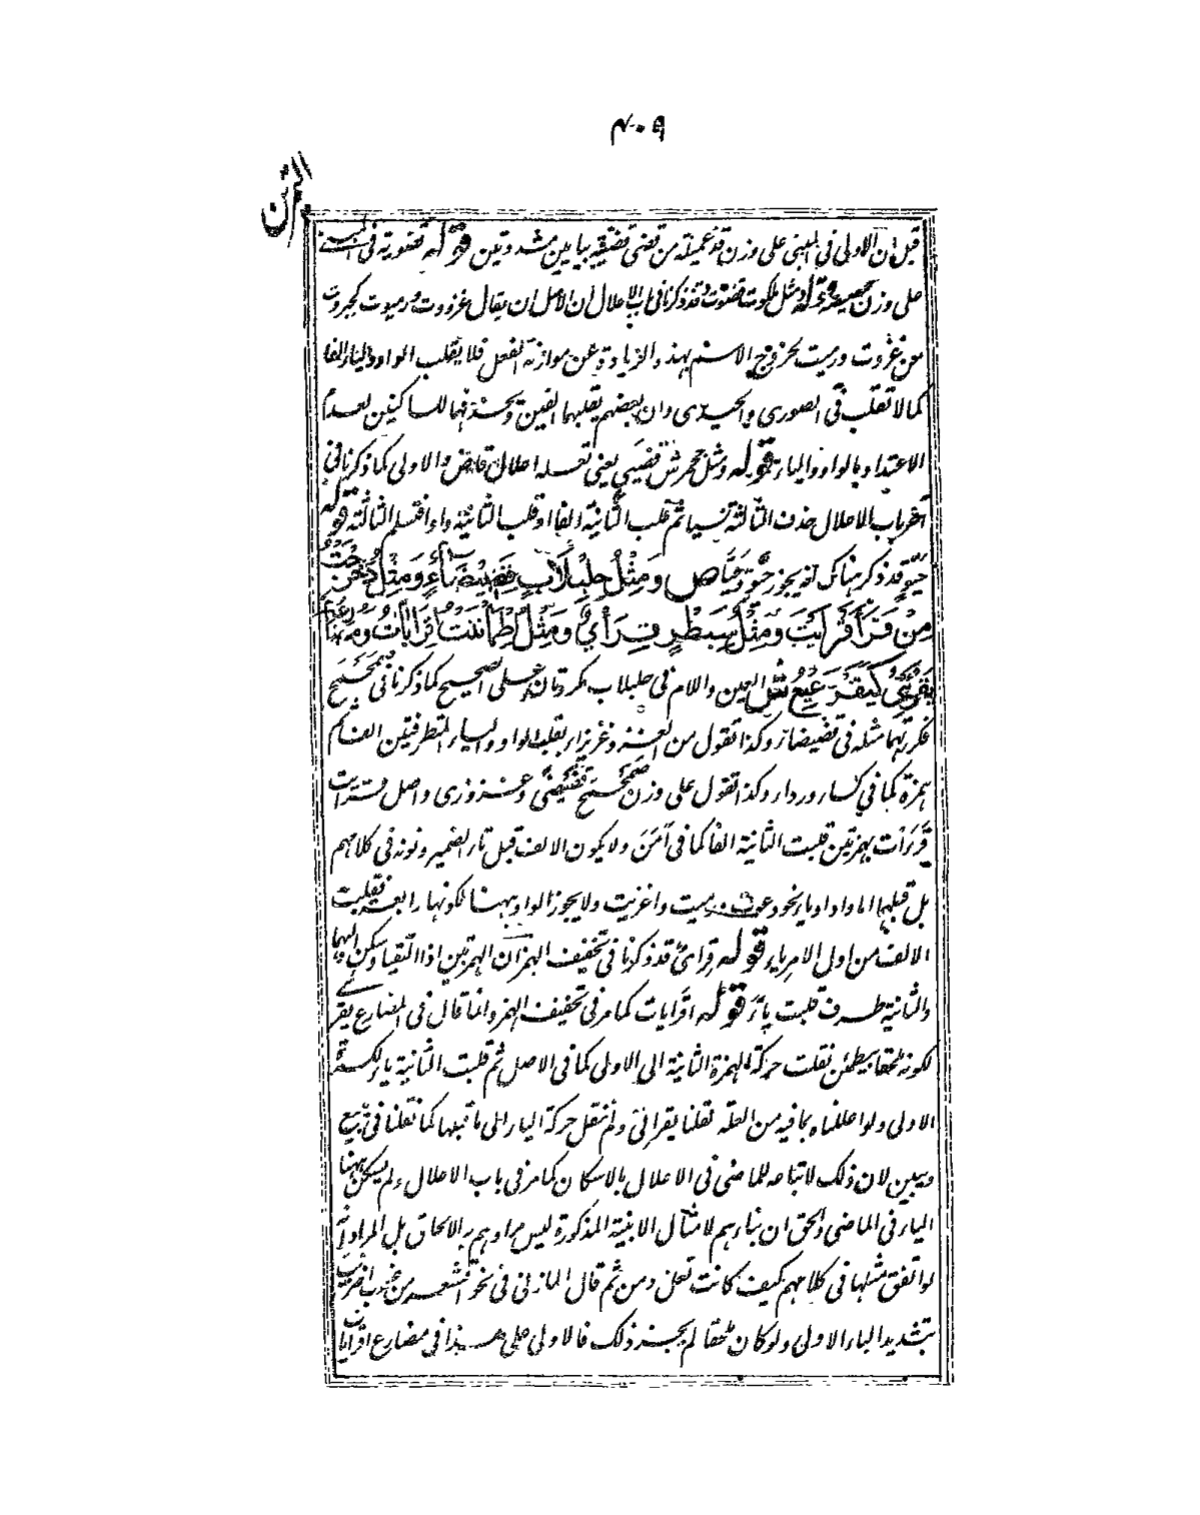 ٤٠٩
التمرين
قيل ان الاولى فى المبنى على وزن قذعميلة من قضى قضيية بيايين مشددتين قوله قضوية فى المبنى
على وزن حمصيصة قوله ومثل ملكوت قضوت وقد ذكرنا فى باب الاعلال ان الاصل ان يقال غزووت ورميوت كجبروت
من غزوت ورميت لخروج الاسم بهذه الزيادة عن موازنة الفعل فلا يقلب الواو والياء الفا
كما لا تقلب فى الصورى والحيدى وان بعضهم يقلبهما الفين ويحذفهما للساكنين لعدم
الاعتداد بالواو والياء قوله ومثل جحمرش قضيى يعنى تعله اعلال قاض والاولى كما ذكرنا فى
آخر باب الاعلال حذف الثالثة نسيا ثم قلب الثانية الفا او قلب الثانية واوا فتسلم الثالثة قوله
حيوة قد ذكر هناك انه يجوز حيو وحياص ومثل حلبلاب قضيضاء ومثل دحرجت
من قرأ قرأيت ومثل سبطر قرأى ومثل اطمأننت اقرأيأت ومضارعه
يقرئيئ كيقرعيع مثل العين واللام فى حلبلاب مكررتان على الصحيح كما ذكرنا فى صمحمح
فكررتهما مثله فى قضيضاء وكذا تقول من الغزو غزيزاء بقلب الواو والياء المتطرفتين الفا ثم
همزة كما فى كساء ورداء وكذا تقول على وزن صمحمح قضيضى وغزوزى واصل قرأيت
قرأأت بهمزتين قلبت الثانية الفا كما فى آمن ولا يكون الالف قبل تاء الضمير ونونه فى كلامهم
بل قبلهما اما واو او ياء نحو دعوت ورميت واغزيت ولا يجوز الواو ههنا لكونها رابعة فقلبت
الالف من اول الامر ياء قوله قرأى قد ذكرنا فى تخفيف الهمزة ان الهمزتين اذا التقتا وسكن اولهما
والثانية طرف قلبت ياء قوله اقرأيات كما مر فى تخفيف الهمزة وانما قال فى المضارع يقرئيئ
لكونه ملحقا بيطمئن نقلت حركة الهمزة الثانية الى الاولى كما فى الاصل ثم قلبت الثانية ياء لكسرة
الاولى ولو اعللناه بما فيه من العلة لقلنا يقرأئى ولم ننقل حركة الياء الى ما قبلها كما نقلنا فى يبيع
ويبين لان ذلك لاتباعه للماضى فى الاعلال بالاسكان كما مر فى باب الاعلال ولم يسكن ههنا
الياء فى الماضى والحق ان بناءهم لامثال الابنية المذكورة ليس مرادهم به الالحاق بل المراد انه
لو اتفق مثلها فى كلامهم كيف كانت تعل ومن ثم قال المازنى فى نحو اقشعر من ضرب اضربب
بتشديد الباء الاولى ولو كان ملحقا لم يجز ذلك فالاولى على هذا فى مضارع اقرأيأت